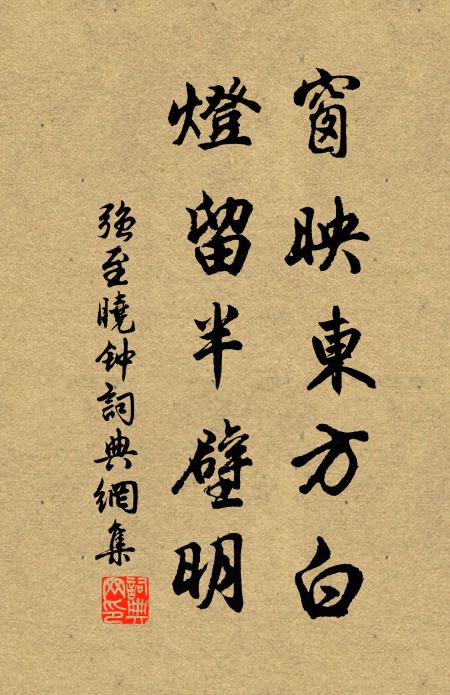 窗映東方白
燈留半壁明
強至曉钟詞典網集
詞典网印